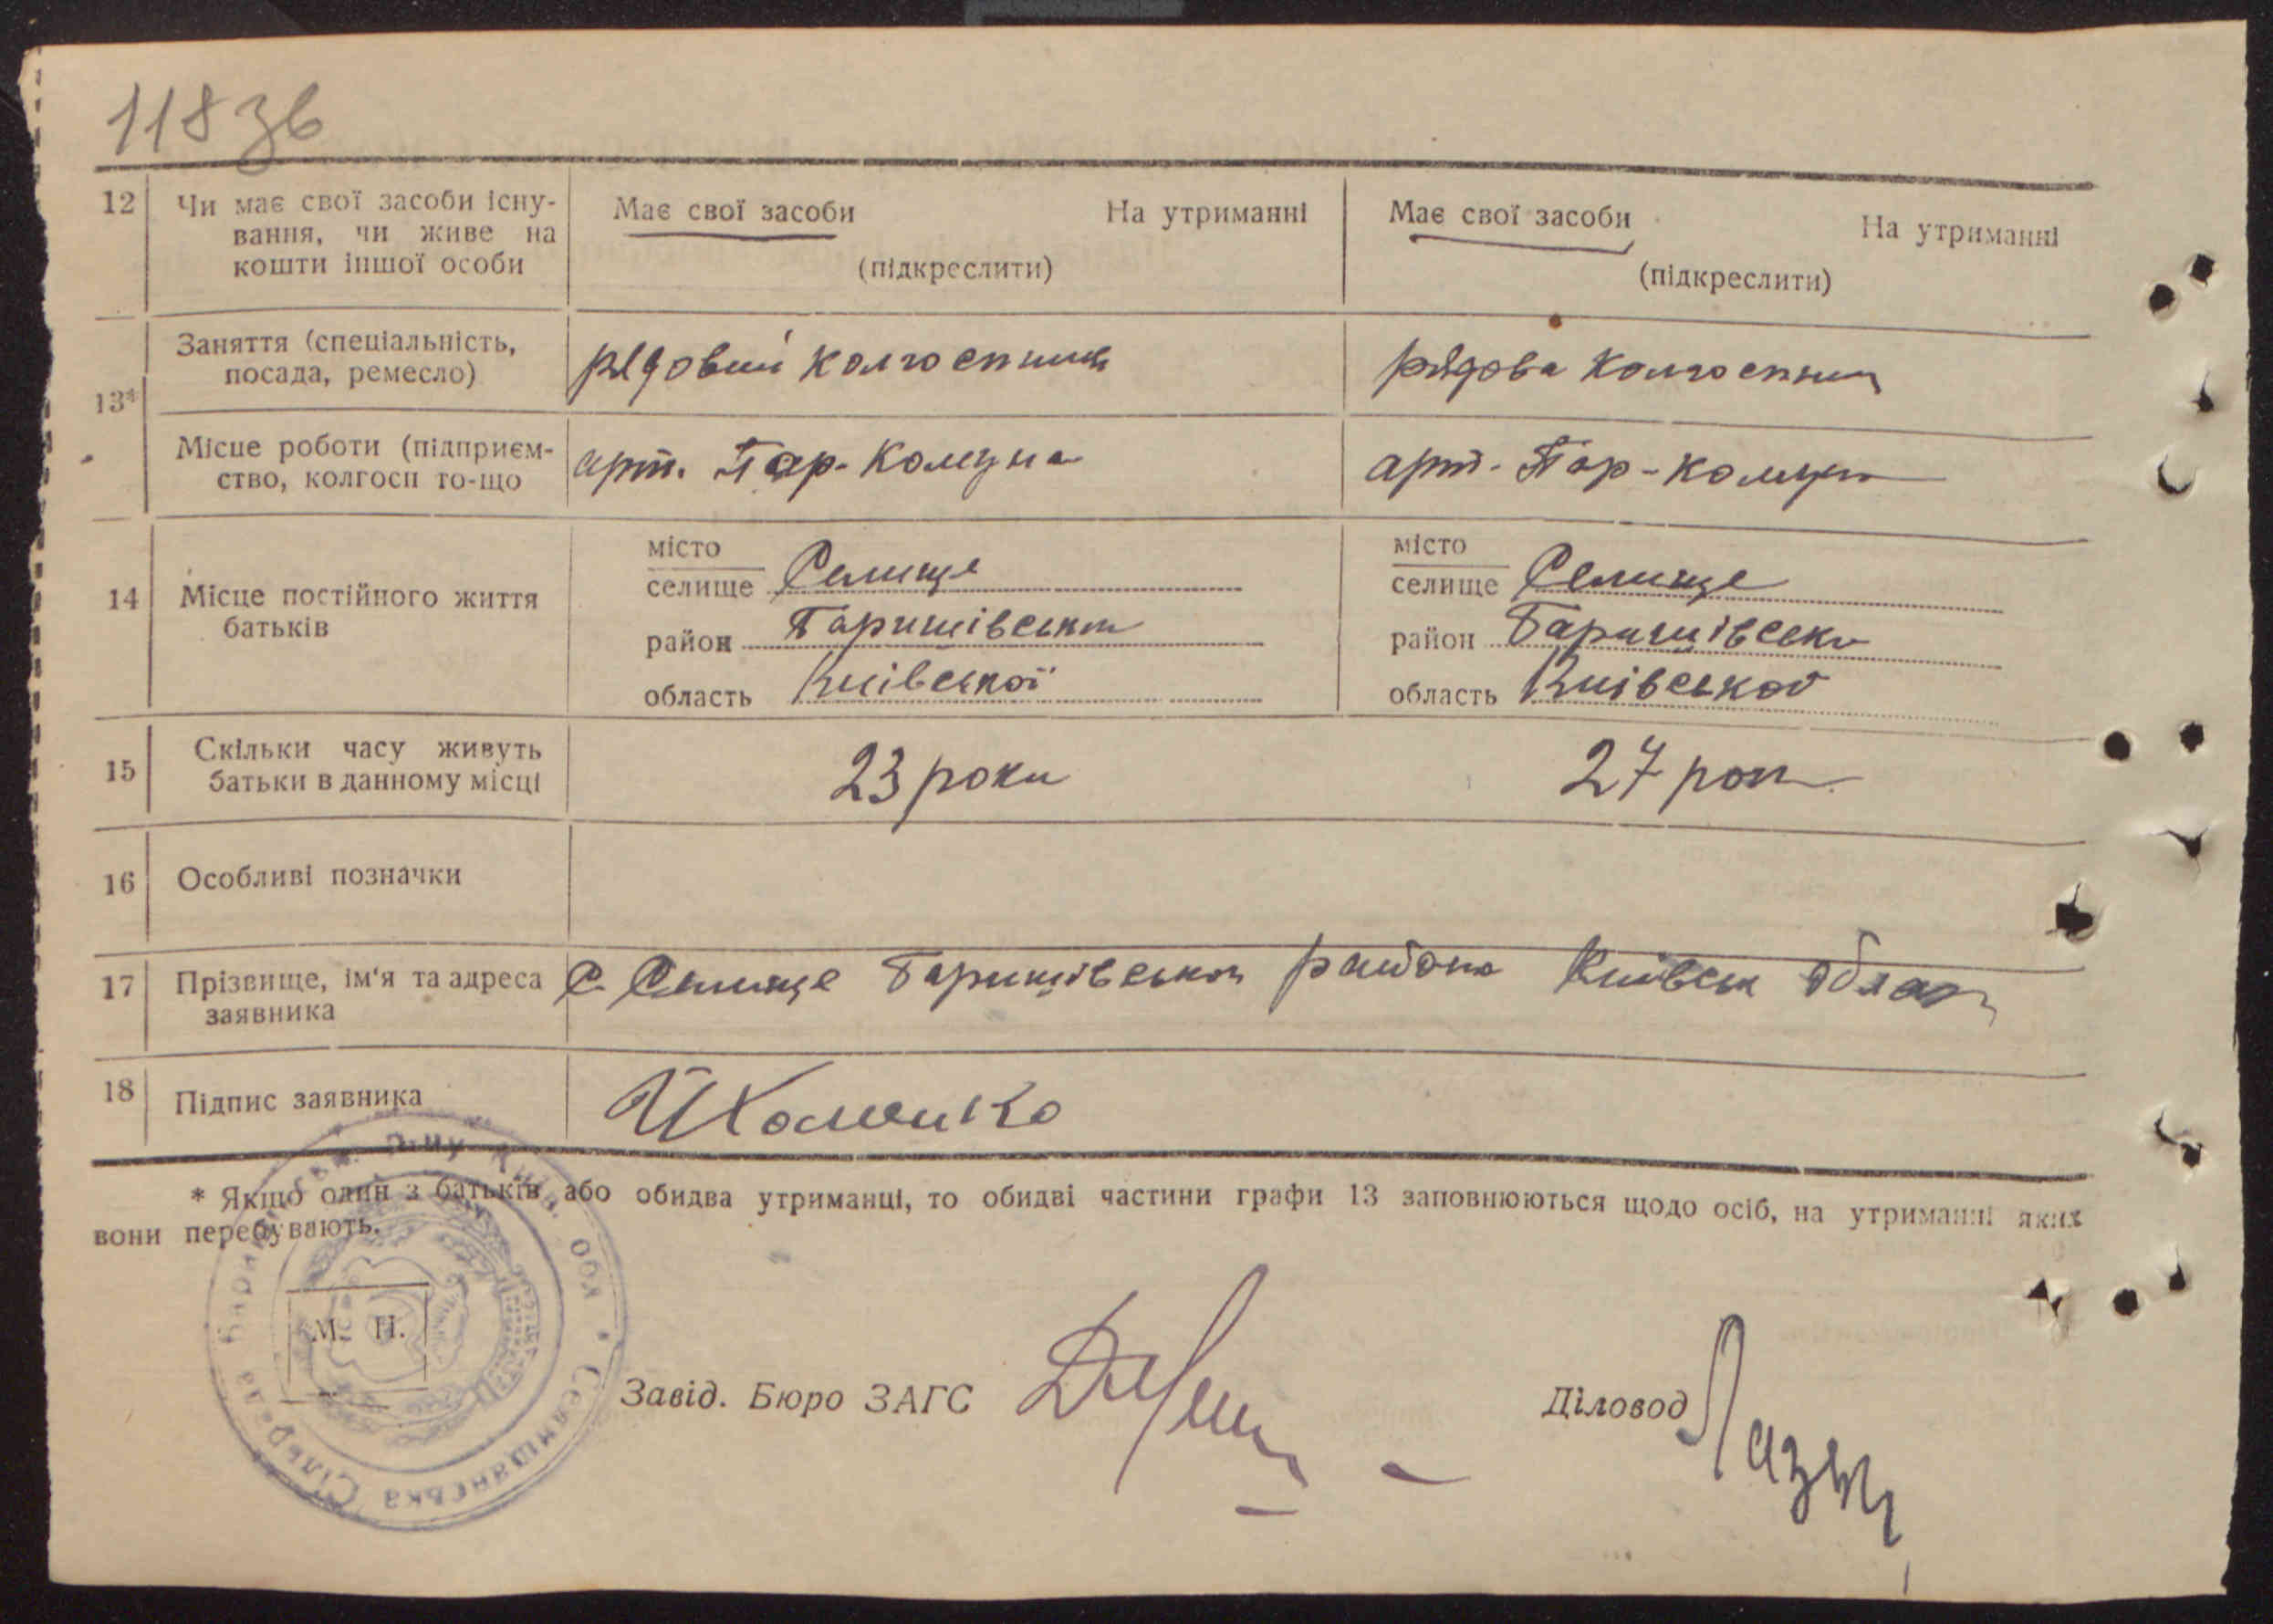 118 зв
12 Чи має свої засоби існу-
вання, чи живе на
кошти іншої особи
Має свої засоби На утриманні
(підкреслити)
Має свої засоби На утриманні
(підкреслити)
13*
Заняття (спеціальність,
посада, ремесло)
рядовий колгоспник
рядова колгоспниц
Місце роботи (підприєм-
ство, колгосп то-що
арт. Пар-Комуна
арт. Пар-комун
14 Місце постійного життя
батьків
місто
селище Селище
район Баришівськи
область Київської
місто
селище Селище
район Баришівськи
область Київської
15 Скільки часу живуть
батьки в данному місці
23 роки
27 рок
16 Особливі позначки
17 Прізвище, ім'я та адреса
заявника
С. Селище Баришівськи района Київськ област
18 Підпис заявника
Хоменко
* Якщо один з батьків або обидва утриманці, то обидві частини графи 13 заповнюються щодо осіб, на утриманні яких
вони перебувають.
М. П.
Селищанська Сільрада
Завід. Бюро ЗАГС
Діловод